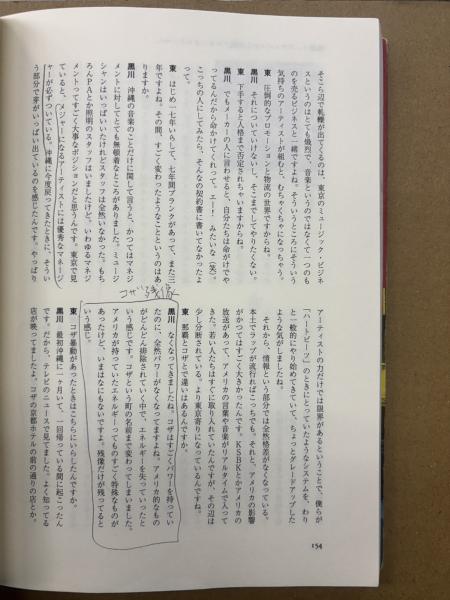 そこら辺で軋轢が出てくるのは、東京のミュージック・ビジネ
スというのはとても熾烈で、音楽というのではなくて一つのも
のを売るビジネスと一緒ですよね。そういうところにそういう
気持ちのアーティストが組むと、むちゃくちゃになっちゃう。
東 圧倒的なプロモーションと物流の世界ですからね。
黒川 それについていけないし、そこまでしてやりたくない。
東 下手すると人格まで否定されちゃいますからね。
黒川 でもメーカーの人に言わせると、自分たちは命がけでや
ってるんだから命かけてくれって。エー！ みたいな（笑）。
こっちの人にしてみたら、そんなの契約書に書いてなかったよ
って。
東 はじめ一七年いらして、七年間ブランクがあって、また三
年ですよね。その間、すごく変わったようなことというのはあ
りますか。
黒川 沖縄の音楽のことだけに関して言うと、かつてはマネジ
メントに対してとても無頓着なところがありました。ミュージ
シャンはいっぱいいたけれどスタッフは全然いなかった。もち
ろんPAとか照明のスタッフはいましたけど、いわゆるマネジ
メントってすごく大事なポジションだと思うんです。東京で見
ていると、メジャーになるアーティストには優秀なマネージ
ャーが必ずついている。沖縄に今度戻ってきたときに、そうい
う部分で芽がいっぱい出ているのを感じたんです。やっぱり
アーティストの力だけでは限界があるということで、僕らが
「ハートビーツ」のときにとっていたようなシステムを、わり
と一般的にやり始めてきていて、ちょっとグレードアップした
ような気がしましたね。
それから、情報という部分では全然格差がなくなっている。
本土でラップが流行ればこっちでも。それと、アメリカの影響
がかつてはすごく大きかったんです。KSBKとかアメリカの
放送があって、アメリカの言葉や音楽がリアルタイムで入って
きた。若い人たちはすぐに取り入れていたんですが、その辺は
少し分断されている。より東京寄りになっているんですね。
東 那覇とコザとで違いはあるんですか。
コザ残像
黒川 なくなってきましたね。コザはすごくパワーを持ってい
たのに、全然パワーがなくなってますよね。アメリカ的なもの
がどんどん排除されていく中で、エネルギーを失っていったと
いう感じです。コザという町の名前まで変わってしまいました。
アメリカが持っていたエネルギーってものすごく特殊なものが
あったけど、いまはなにもないですよ。残像だけが残ってると
いう感じ。
東 コザ暴動があったときはこちらにいらしたんですか。
黒川 最初沖縄に一ヶ月いて、一回帰っている間に起こったん
です。だから、テレビのニュースで見てました。よく知ってる
店が映ってましたよ。コザの京都ホテルの前の通りの店とか。
154